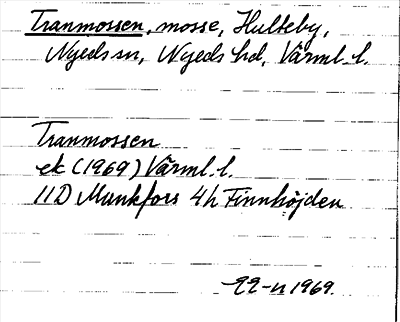 Tranmossen, mosse, Hulteby,
Nyeds sn, Nyeds hd, Värml. l.
Tranmossen
ek (1969) Värml. l.
11D Munkfors 4h Finnhöjden
1969.